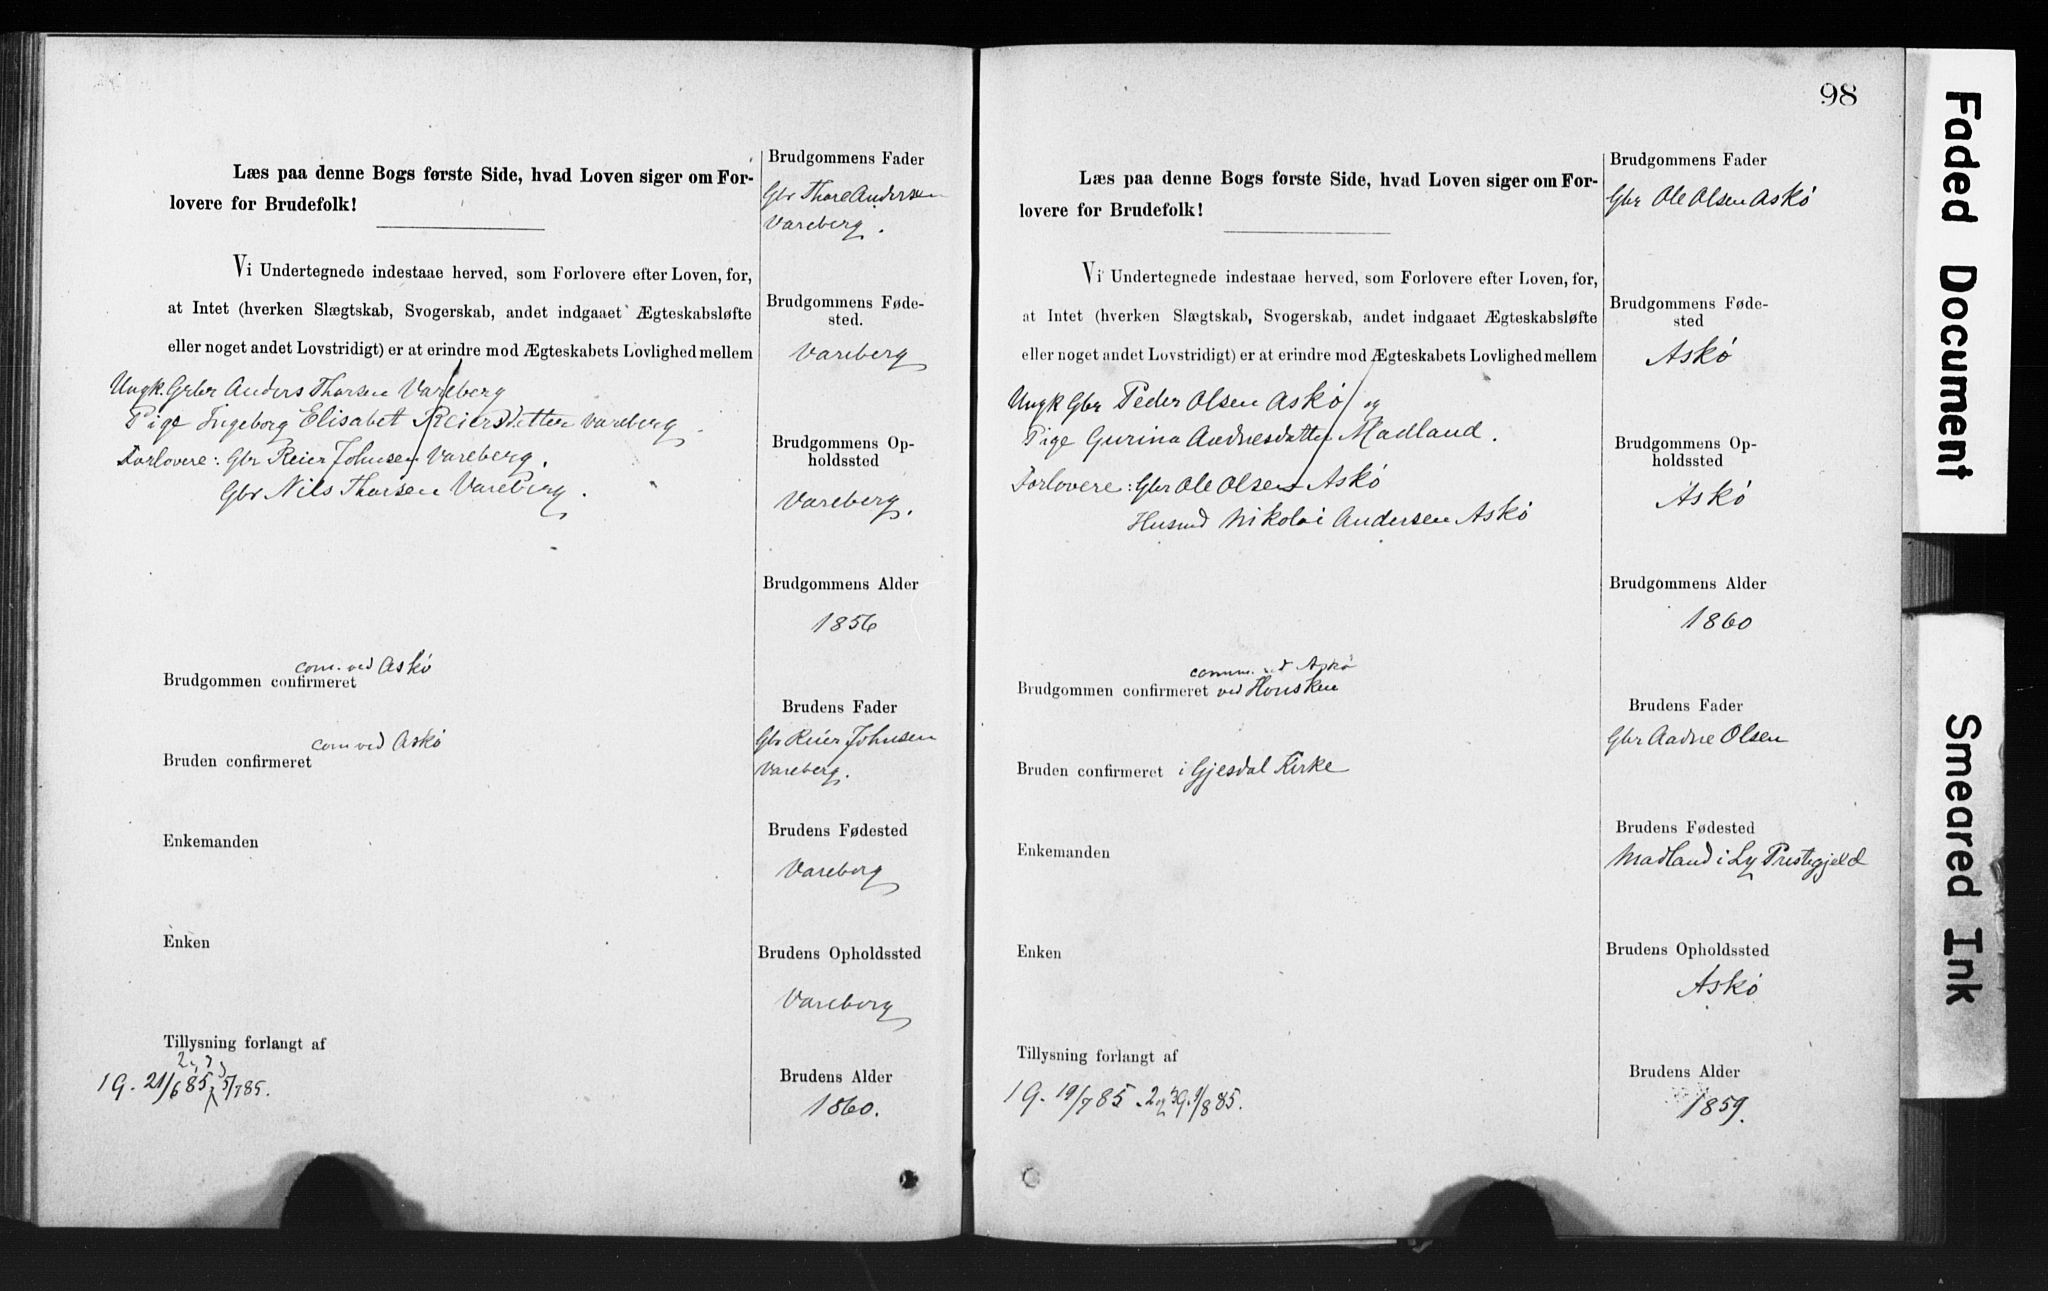 Læs paa denne Bogs første Side, hvad Loven siger om For-
lovere for Brudefolk!
Vi Undertegnede indestaae herved, som Forlovere efter Loven, for,
at Intet (hverken Slægtskab, Svogerskab, andet indgaaet Ægteskabsløfte
eller noget andet Lovstridigt) er at erindre mod Ægteskabets Lovlighed mellem
Ungk. Grbr Anders Thorsen Vareberg
Pige Ingeborg Elisabet Reiersdatter Vareberg
Forlovere: Gbr Reier Johnsen Vareberg.
Gbr Nils Thorsen Vareberg.
com. ved Askö
Brudgommen confirmeret
com ved Askö
Bruden confirmeret
Enkemanden
Enken
Tillysning forlangt af
1 G. 21/6 85 5/7 85.
Brudgommens Fader
Gbr Thore Andersen
Vareberg.
Brudgommens Føde-
sted.
Vareberg
Brudgommens Op-
holdssted
Vareberg.
Brudgommens Alder
1856
Brudens Fader
Gbr Reier Johnsen
Vareberg.
Brudens Fødested
Vareberg
Brudens Opholdssted
Vareberg
Brudens Alder
1860.
98
Læs paa denne Bogs første Side, hvad Loven siger om For-
lovere for Brudefolk!
Vi Undertegnede indestaae herved, som Forlovere efter Loven, for,
at Intet (hverken Slægtskab, Svogerskab, andet indgaaet Ægteskabsløfte
eller noget andet Lovstridigt) er at erindre mod Ægteskabets Lovlighed mellem
Ungk Gbr Peder Olsen Askö og
Pige Gurina Aadnesdatter Madland.
Forlovere: Gbr Ole Olsen Askö
Husmd Nikolai Andersen Askö
comm. ved Askö
Brudgommen confirmeret ved Hausken
Bruden confirmeret i Gjesdal Kirke
Enkemanden
Enken
Tillysning forlangt af
1 G. 19/7 85. 2 og 3 G. 9/8 85.
Brudgommens Fader
Gbr Ole Olsen Askö
Brudgommens Føde-
sted
Askö
Brudgommens Op-
holdssted
Askö
Brudgommens Alder
1860
Brudens Fader
Gbr Aadne Olsen
Brudens Fødested
Madland i Ly Prestegjeld
Brudens Opholdssted
Askö
Brudens Alder
1859.
Faded Document
Smeared Ink